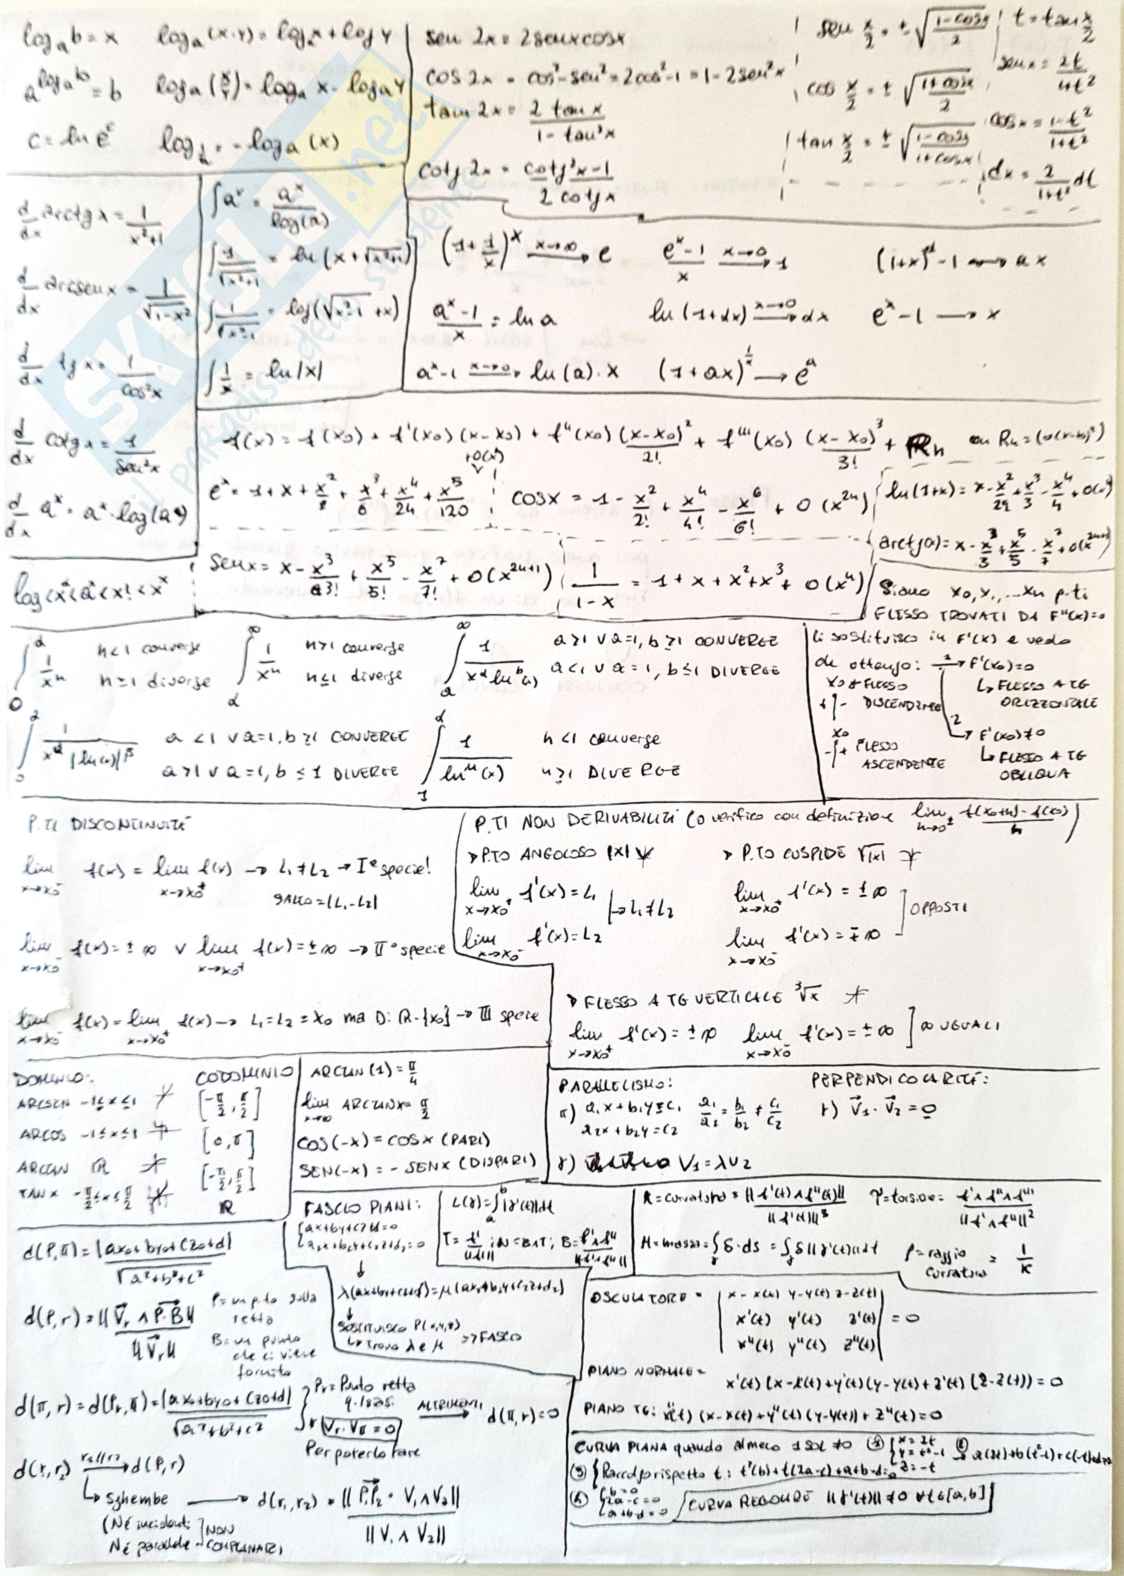 log_a b = x    log_a (x·y) = log_a x + log y
a^(log_a b) = b    log_a (x/y) = log_a x - log_a y
c = ln e^c    log_(1/a) = -log_a (x)
sen 2x = 2senxcosx
cos 2x = cos² - sen² = 2cos² - 1 = 1 - 2sen²x
tan 2x = 2 tan x / 1 - tan²x
cotg 2x = cotg²x - 1 / 2 cotg x
sen x/2 = ± √(1-cosx / 2)
cos x/2 = ± √(1+cosx / 2)
tan x/2 = ± √(1-cosx / 1+cosx)
t = tan x/2
sen x = 2t / 1+t²
cos x = 1-t² / 1+t²
dx = 2 / 1+t² dt
d/dx arctg x = 1 / x²+1
d/dx arcsen x = 1 / √(1-x²)
d/dx tg x = 1 / cos²x
d/dx cotg x = 1 / sen²x
d/dx a^x = a^x · log(a)
∫a^x = a^x / log(a)
∫ 1/√(x²+1) = ln (x+√(x²+1))
∫ 1/√(x²-1) = log(√(x²-1) + x)
∫ 1/x = ln|x|
(1 + 1/x)^x x→∞ e    e^x - 1 / x x→0 1    (1+x)^a - 1 → ax
a^x - 1 / x = ln a    ln (1+αx) x→0 αx    e^x - 1 → x
a^x - 1 x→0 ln(a)·x    (1+ax)^(1/x) → e^a
f(x) = f(x0) + f'(x0)(x-x0) + f''(x0) (x-x0)²/2! + f'''(x0) (x-x0)³/3! + Rn
e^x = 1 + x + x²/2 + x³/6 + x⁴/24 + x⁵/120 + o(x⁵)
cosx = 1 - x²/2! + x⁴/4! - x⁶/6! + o(x^2n)
ln(1+x) = x - x²/2 + x³/3 - x⁴/4 +
senx = x - x³/3! + x⁵/5! - x⁷/7! + o(x^(2n+1))
1/1-x = 1 + x + x² + x³ + o(x^n)
= x - x³/3 + x⁵/5 - x⁷/7 +
log < x^a < a^x < x! < x^x
Siano x0, x1, ... xn p.ti
FLESSO TROVATI DA F''(x)=0
li sostituisco in F'(x) e vedo
F'(x0)=0
↳ FLESSO A TG
ORIZZONTALE
x0 FLESSO
DISCENDENTE
F'(x0)≠0
↳ FLESSO A TG
OBLIQUA
x0
FLESSO
ASCENDENTE
∫ 0 α 1/x^n    n<1 converge
n≥1 diverge
∫ α ∞ 1/x^n    n>1 converge
n≤1 diverge
a>1 ∨ a=1, b>1 CONVERGE
a<1 ∨ a=1, b≤1 DIVERGE
a<1 ∨ a=1, b>1 CONVERGE
a>1 ∨ a=1, b≤1 DIVERGE
∫ 1 α 1/ln^n(x)    n<1 converge
n≥1 DIVERGE
P.TI DISCONTINUITÀ
lim x→x0⁻ f(x) = lim x→x0⁺ f(x) → L1≠L2 → Iª specie!
SALTO = |L1-L2|
lim x→x0⁻ f(x) = ±∞ ∨ lim x→x0⁺ f(x) = ±∞ → IIª specie
lim x→x0⁻ f(x) = lim x→x0⁺ f(x) → L1=L2=x0 ma D: R-{x0} → III specie
P.TI NON DERIVABILITÀ (o verifico con definizione lim h→0± f(x0+h)-f(x0) / h)
> P.TO ANGOLOSO |x|
lim x→x0⁺ f'(x) = L1
→ L1≠L2
lim x→x0⁻ f'(x) = L2
> P.TO CUSPIDE √|x|
lim x→x0⁺ f'(x) = ±∞
OPPOSTI
lim x→x0⁻ f'(x) = ∓∞
> FLESSO A TG VERTICALE ³√x
lim x→x0⁺ f'(x) = ±∞    lim x→x0⁻ f'(x) = ±∞    ∞ UGUALI
DOMINIO:    CODOMINIO
ARCSEN -1≤x≤1    [-π/2, π/2]
ARCOS -1≤x≤1    [0, π]
ARCTAN R    [-π/2, π/2]
TAN x -π/2≤x≤π/2    R
ARCTAN (1) = π/4
lim x→∞ ARCTANx = π/2
COS(-x) = COSx (PARI)
SEN(-x) = -SENx (DISPARI)
PARALLELISMO:    PERPENDICOLARITÀ:
π) a1x + b1y = c1    a1/a2 = b1/b2 ≠ c1/c2    r) V1 · V2 = 0
a2x + b2y = c2
r) V1 = λV2
FASCIO PIANI:
λ(ax+by+cz+d) = μ(ax+by+cz+d)
SOSTITUISCO P(x,y,z)
↳ trovo λ e μ → FASCIO
L(γ) = ∫ a b |γ'(t)| dt
R = curvatura = ||f'(t) ∧ f''(t)|| / ||f'(t)||³    τ = torsione: f' ∧ f'' ∧ f''' / ||f' ∧ f''||²
M = massa = ∫ δ·ds = ∫ δ ||γ'(t)|| dt    ρ = raggio curvatura = 1/K
d(P,π) = |ax0+by0+cz0+d| / √(a²+b²+c²)
d(P,r) = ||Vr ∧ P-B|| / ||Vr||
P = un p.to sulla retta
B = un punto che ci viene fornito
d(π,r) = d(Pr,π) = |ax0+by0+cz0+d| / √(a²+b²+c²)
Pr = Punto retta
Vr·Vπ = 0
Per poterlo fare
ALTRIMENTI d(π,r)=0
d(r1,r2) r1//r2 d(P,r)
↳ Sghembe → d(r1,r2) = ||P1P2 · V1∧V2|| / ||V1 ∧ V2||
(Né incidenti
Né parallele → NON COMPLANARI
OSCULATORE = | x-x(t) y-y(t) z-z(t) |
| x'(t) y'(t) z'(t) | = 0
| x''(t) y''(t) z''(t) |
PIANO NORMALE =
x'(t)(x-x(t)) + y'(t)(y-y(t)) + z'(t)(z-z(t)) = 0
PIANO TG: x''(t)(x-x(t)) + y''(t)(y-y(t)) + z''(t) = 0
CURVA PIANA quando almeno 1 sol ≠0 ① {x=2t y=t²-1 z=-t ② a(2t)+b(t²-1)+c(-t)+d=0
③ {Raccolgo rispetto t: t²(b)+t(2a-c)+a+b-d=0
④ {b=0 2a-c=0 a+b-d=0
CURVA REGOLARE ||γ'(t)|| ≠ 0 ∀t∈[a,b]
SKUOLA.net
il paradiso dello studente